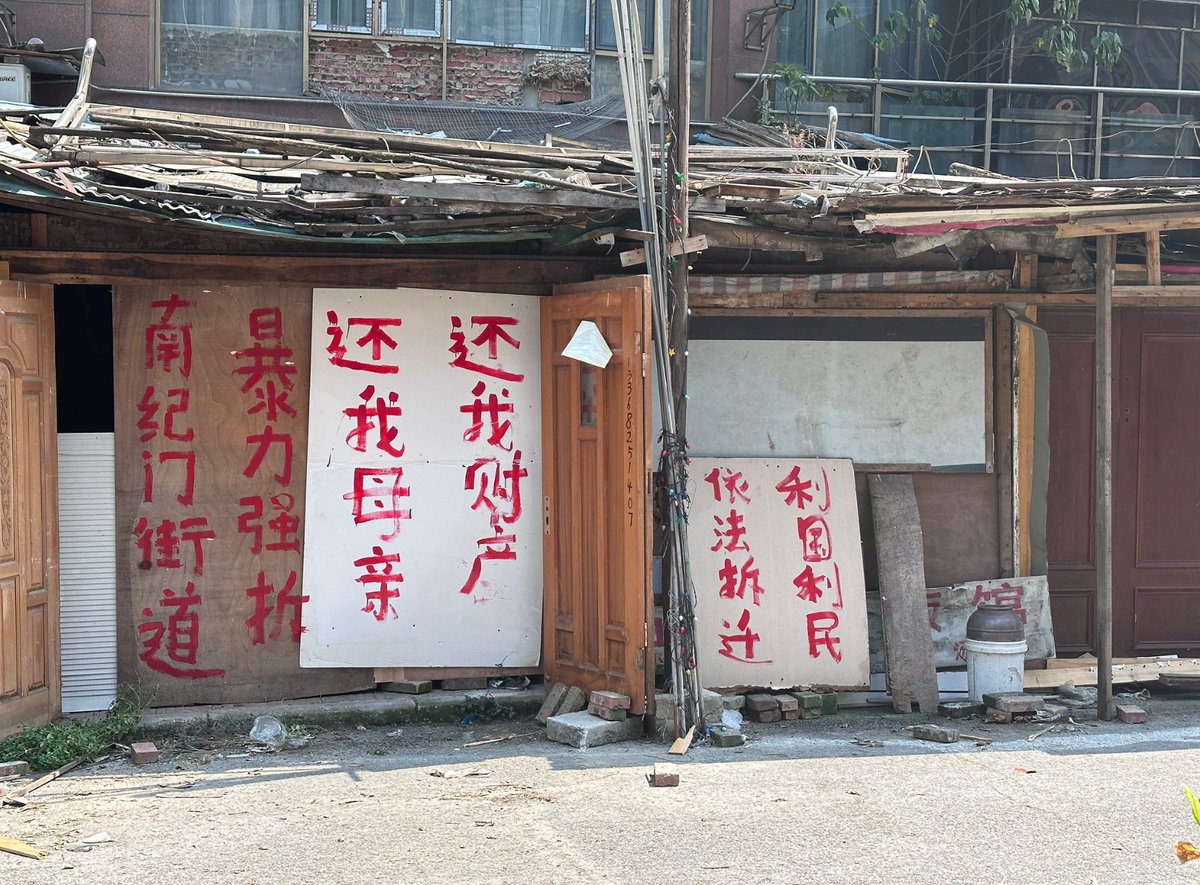 南纪门街道
暴力强拆
还我母亲
还我财产
13368251407
依法拆迁
利国利民
馆